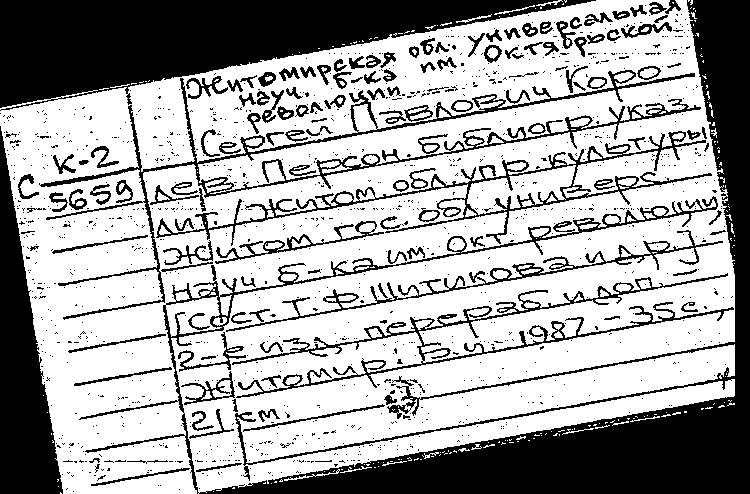 Житомирская обл. универсальная
науч. б-ка им. Октябрьской
революции
Сергей Павлович Коро-
С К-2
5659
лев: Персон. библиогр. указ.
лит. / Житом. обл. упр. культуры,
Житом. гос. обл. универс.
науч. б-ка им. Окт. революции;
[Сост. Т. Ф. Шитикова и др.]. -
2-е изд., перераб. и доп. -
Житомир: Б.и. 1987. - 35 с.;
21 см.